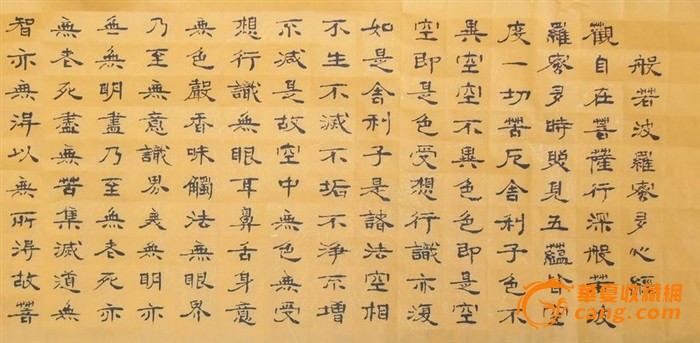 般若波羅蜜多心經
觀自在菩薩行深般若波
羅蜜多時照見五蘊皆空
度一切苦厄舍利子色不
異空空不異色色即是空
空即是色受想行識亦復
如是舍利子是諸法空相
不生不滅不垢不淨不增
不減是故空中無色無受
想行識無眼耳鼻舌身意
無色聲香味觸法無眼界
乃至無意識界無無明亦
無無明盡乃至無老死亦
無老死盡無苦集滅道無
智亦無得以無所得故菩
華夏收藏網
cang.com